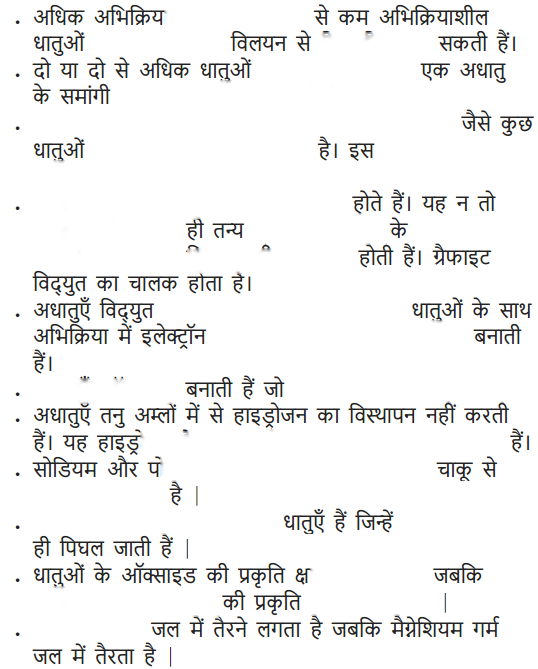 • अधिक अभिक्रिय से कम अभिक्रियाशील
धातुओं विलयन से सकती हैं।
• दो या दो से अधिक धातुओं एक अधातु
के समांगी
• जैसे कुछ
धातुओं है। इस
• होते हैं। यह न तो
ही तन्य के
होती हैं। ग्रैफाइट
विद्युत का चालक होता है।
• अधातुएँ विद्युत धातुओं के साथ
अभिक्रिया में इलेक्ट्रॉन बनाती
हैं।
• बनाती हैं जो
• अधातुएँ तनु अम्लों में से हाइड्रोजन का विस्थापन नहीं करती
हैं। यह हाइड्र हैं।
• सोडियम और प चाकू से
है |
• धातुएँ हैं जिन्हें
ही पिघल जाती हैं |
• धातुओं के ऑक्साइड की प्रकृति क्ष जबकि
की प्रकृति |
• जल में तैरने लगता है जबकि मैग्नेशियम गर्म
जल में तैरता है |